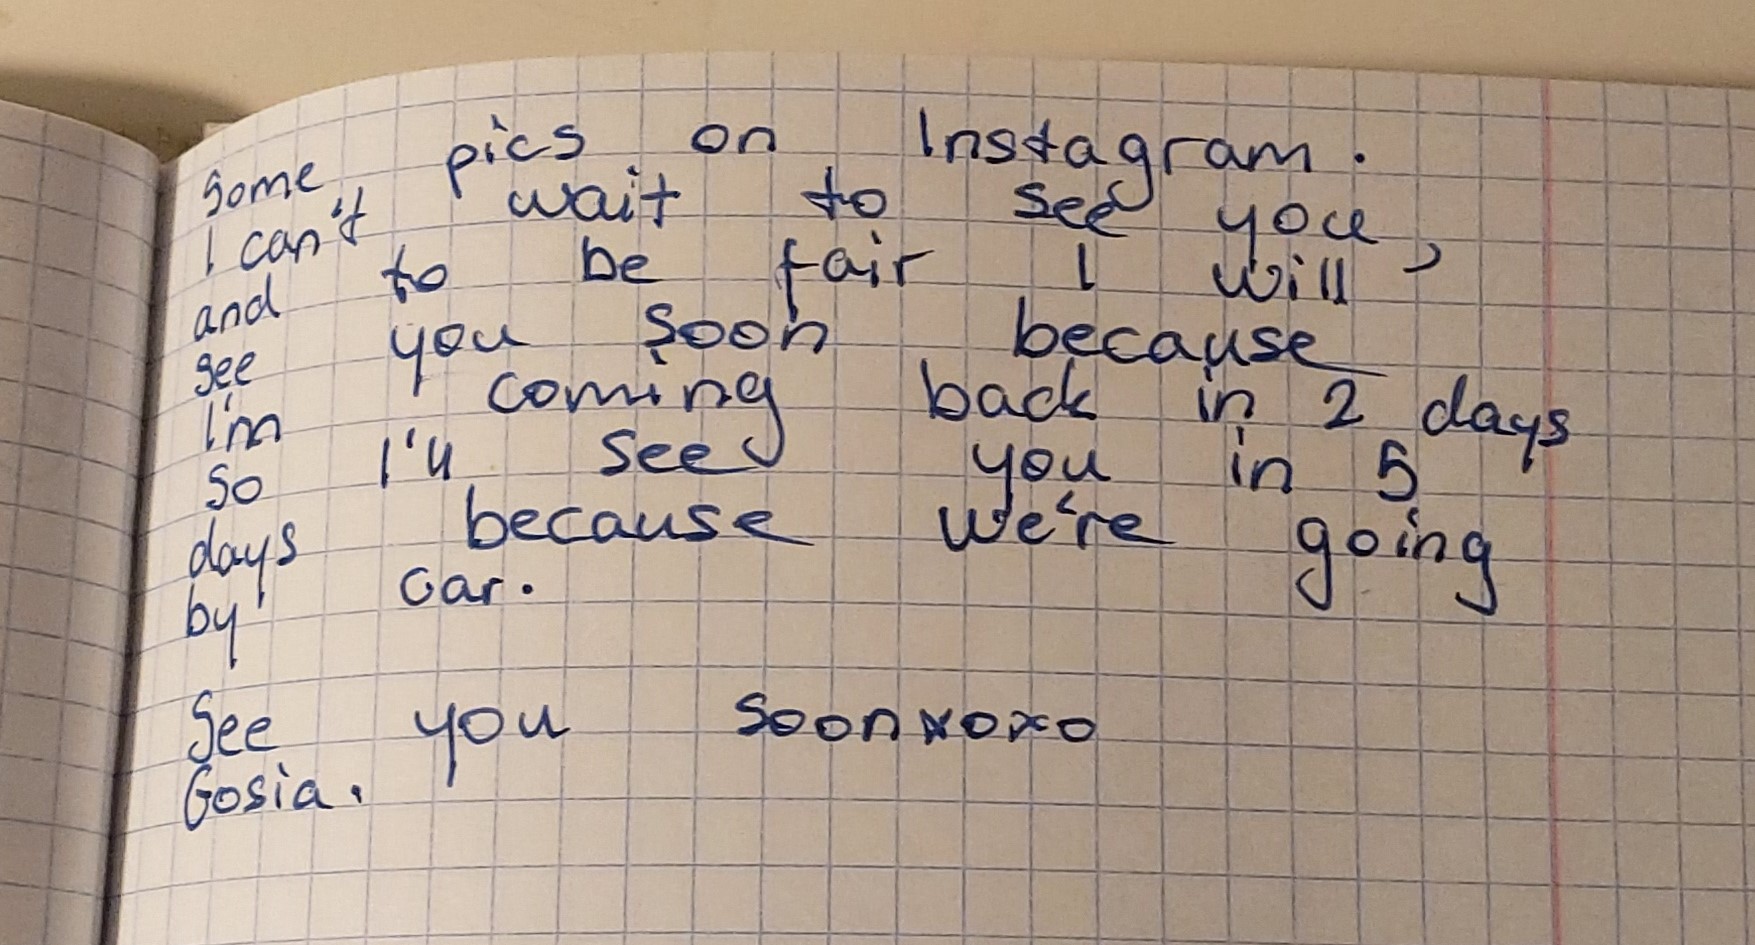 some pics on Instagram.
I can't wait to see you,
and to be fair I will
see you soon because
I'm coming back in 2 days
so I'll see you in 5
days because we're going
by car.
See you soon xoxo
Gosia.